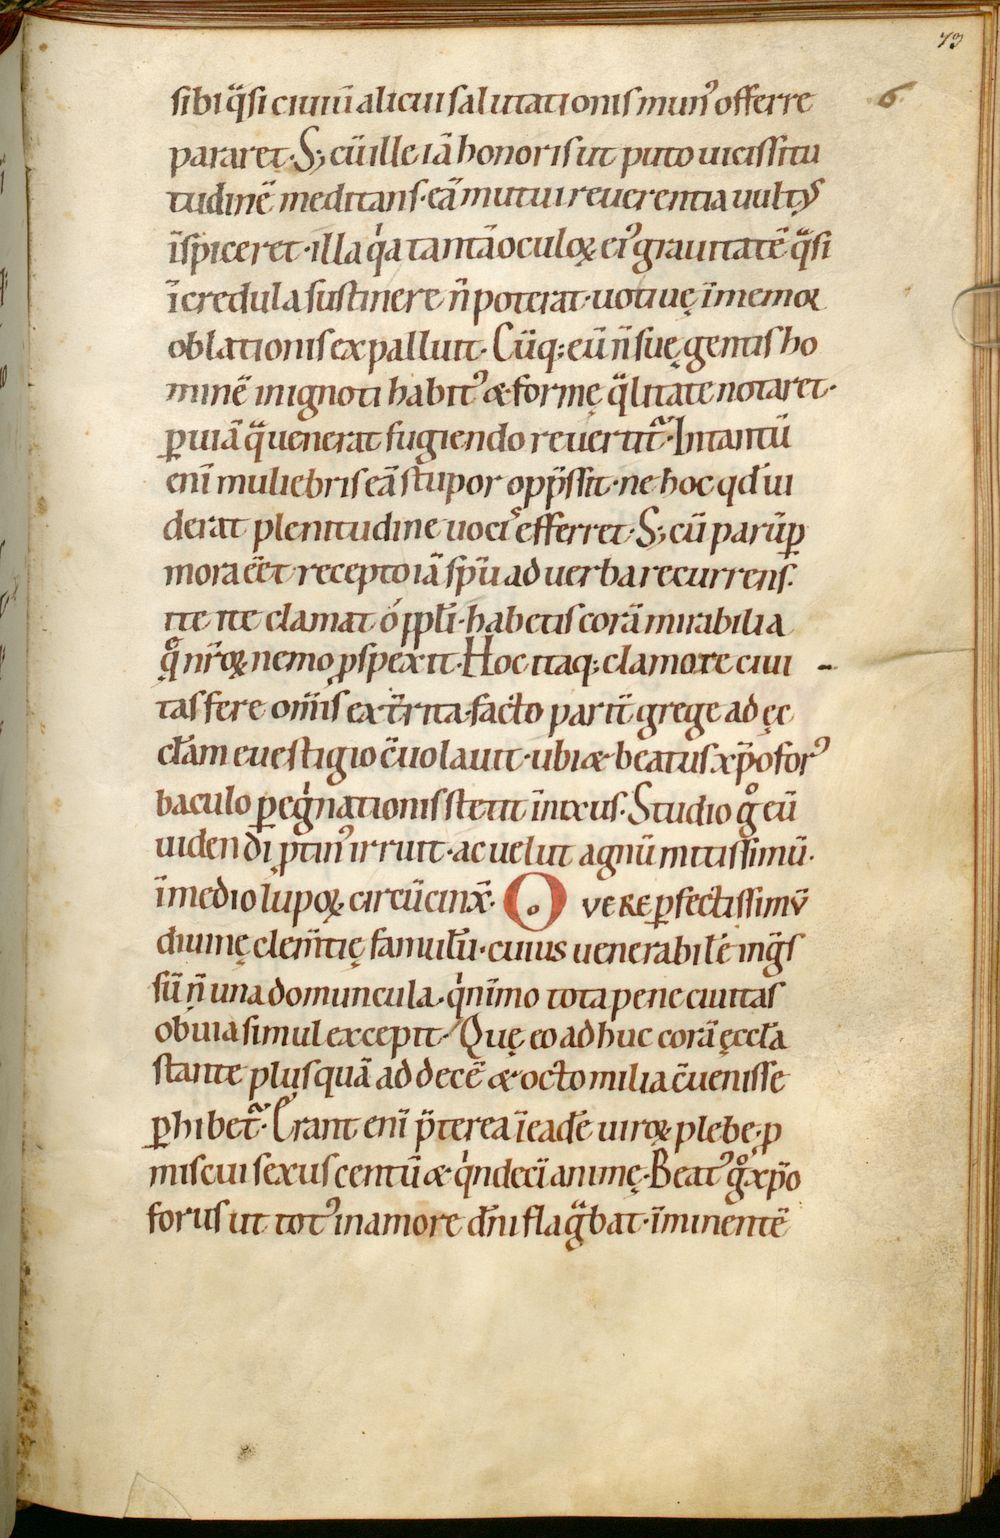 73
6
sibi q̃si ciuiū alicui salutationis mun᾽ offerre
pararet · S; cū ille iā honoris ut puto uicissitu
tudinē meditans · eā mutui reuerentia uultꝰ
īspiceret · illa q̇a tantā oculoꝝ ei᾽ grauitatē q̃si
īcredula sustinere ñ poterat · uotiuę īmemor
oblationis expalluit · Cūq; eū ñ suę gentis ho
minē in ignoti habit᾽ & formę q̃litate notaret ·
ꝑ uiā q̃ uenerat fugiendo reuertit᷑ · Intantū
eni᷑ muliebris eā stupor opp̃ssit · ne hoc qđ ui
derat plenitudine uocis efferret · S; cū parūꝑ
mora ēēt recepto iā sp̄u ad uerba recurrens ·
ite ite clamat ó ꝓpl̄i · habetis corā mirabilia
q̊ nr̄oꝝ nemo ꝓspexit · Hoc itaq; clamore ciui
tas fere om̄is ext̄rita · facto parit̄ grege ad ęc
cl̄am euestigio c̄uolauit · ubi & beatus xp̄ofor᾽
baculo ꝑeg̓nationis stetit īnixus · Studio g̊ eū
uidendi ꝓtin᾽ irruit · ac uelut agnū mitissimū ·
īmedio lupoꝝ circūcinx̄ · O uere ꝑfectissimū
diuinę clem̄tię famulū · cuius uenerabilē ing̃s
sū ñ una domuncula · q̓nīmo tota pene ciuitas
obuia simul excepit · Quę eo adhuc corā ęccl̄a
stante plusquā ad decē & octo milia c̄uenisse
ꝑhibet᷑ · Erant eni᷑ p̄terea ī eadē uiroꝝ plebe · ꝓ
miscui sexus centū & q̓ndecī animę · Beat᾽ g̊ xp̄o
forus ut tot᾽ in amore dn̄i flag̃bat · īminentē